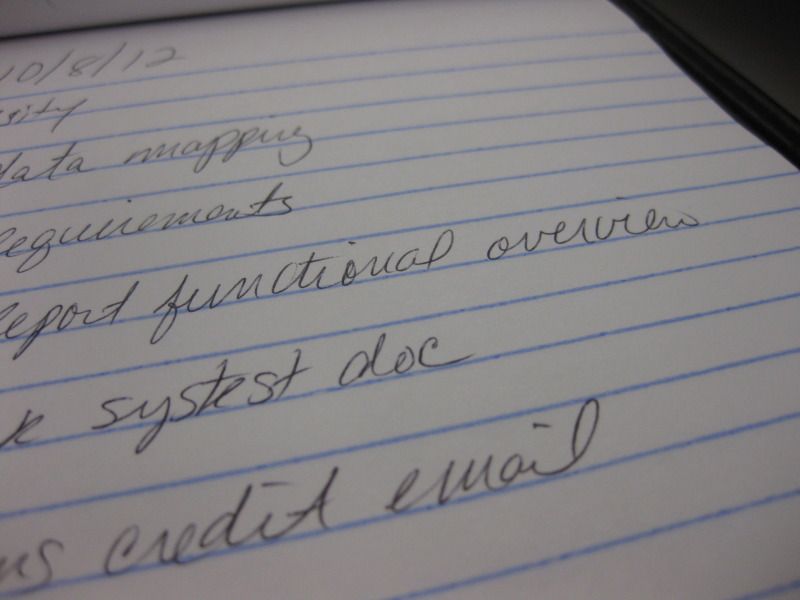 10/8/12
data mapping
requirements
report functional overview
systest doc
credit email